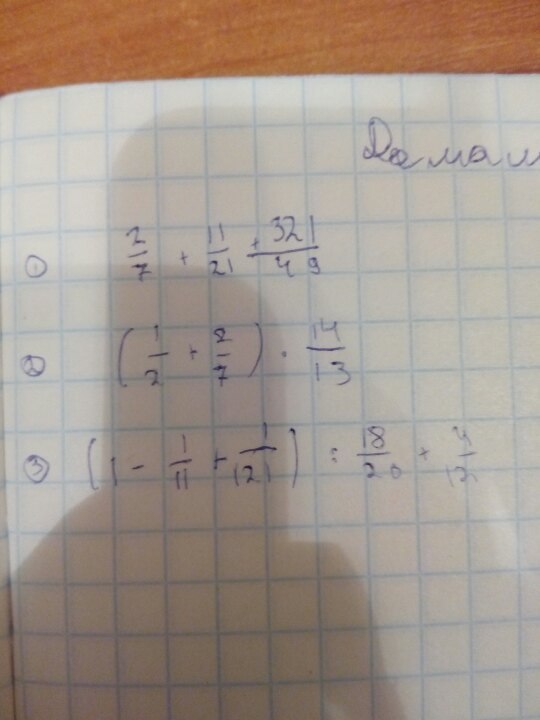 Домаш
① 2/7 + 11/21 + 321/49
② (1/2 + 2/7) · 14/13
③ (1 - 1/11 + 1/121) : 18/20 + 4/121